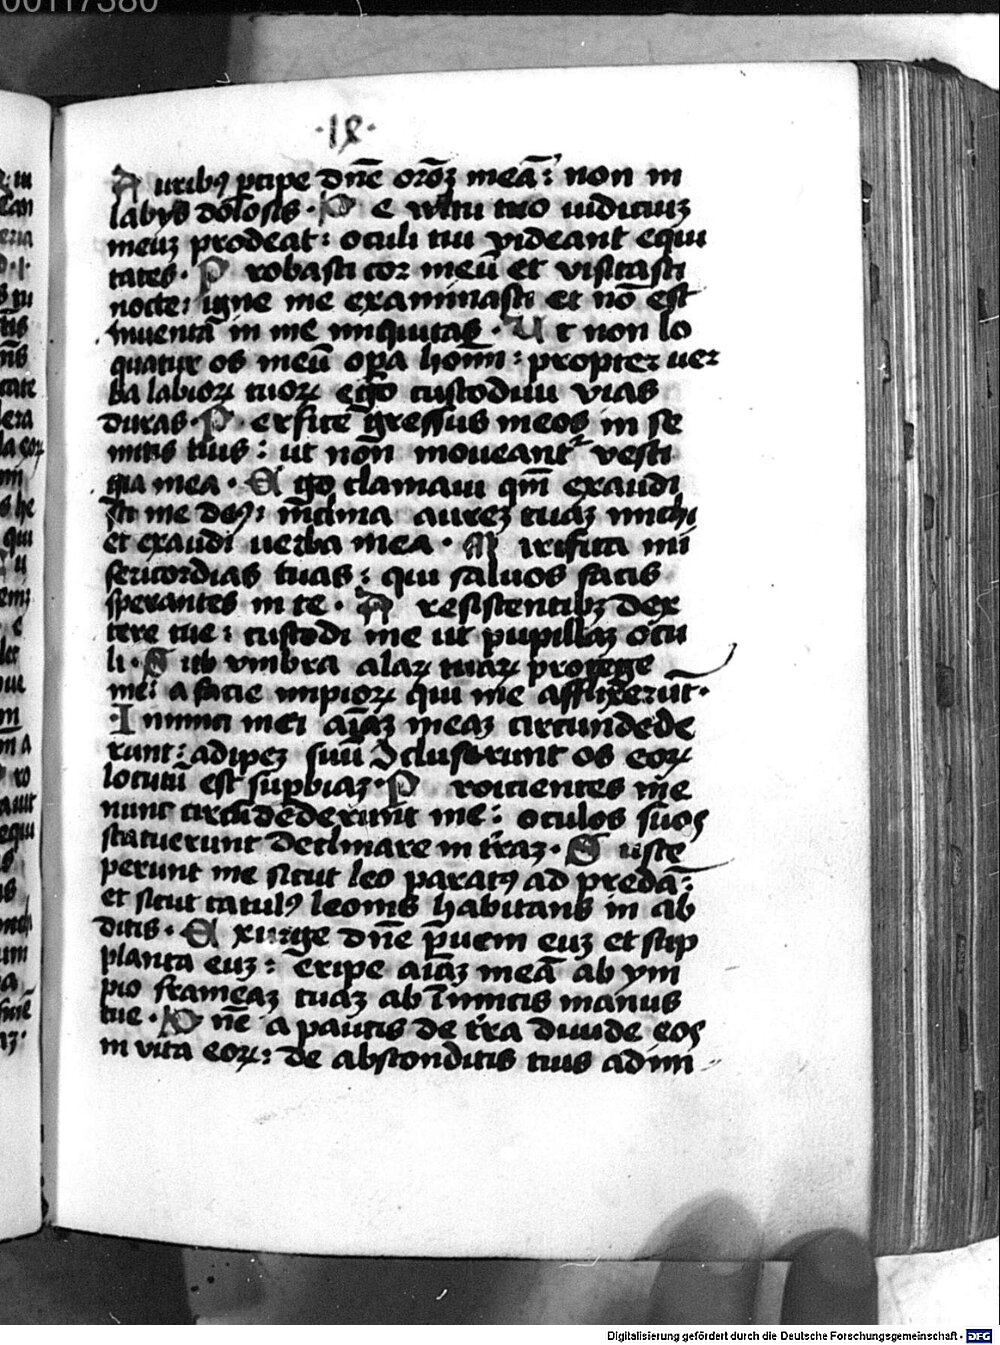 00117380
·18·
Auribꝫ ꝑcipe dn̄e or̄oꝫ meā: non in
labys dolosis· De vultu tuo iudiciuꝫ
meuꝫ prodeat: oculi tui videant equi
tates· Probasti cor meū et visitasti
nocte: igne me examinasti et nō est
inuentā in me iniquitas· Ut non lo
quatur os meū oꝑa hoīm: propter uer
ba labioꝝ tuoꝝ ego custodiui vias
duras· Perfice gressus meos in se
mitis tuis: ut non moueantᷣ vesti
gia mea· Ego clamaui qm̄ exaudi
sti me deꝰ: inclina aureꝫ tuaꝫ michi
et exaudi uerba mea· Mirifica mi
sericordias tuas: qui saluos facis
sperantes in te· A resistentibꝫ dex
tere tue: custodi me ut pupillaꝫ ocu
li· Sub vmbra alaꝝ tuaꝝ protege
me: a facie impioꝝ qui me afflixerūt·
Inimici mei aīaꝫ meaꝫ circundede
runt: adipeꝫ suū ɔcluserunt os eoꝝ
locutū est suꝑbiaꝫ· Proicientes me
nunc circūdederunt me: oculos suos
statuerunt declinare in terraꝫ· Susce
perunt me sicut leo paratꝰ ad predā:
et sicut catulꝰ leonis habitans in ab
ditis· Exurge dn̄e p̄ueni euꝫ et sup
planta euꝫ: eripe aīaꝫ meā ab ym
pio frameaꝫ tuaꝫ ab īimicis manus
tue· Dn̄e a paucis de tr̄a diuide eos
in vita eoꝝ: de absconditis tuis adim
Digitalisierung gefördert durch die Deutsche Forschungsgemeinschaft - DFG